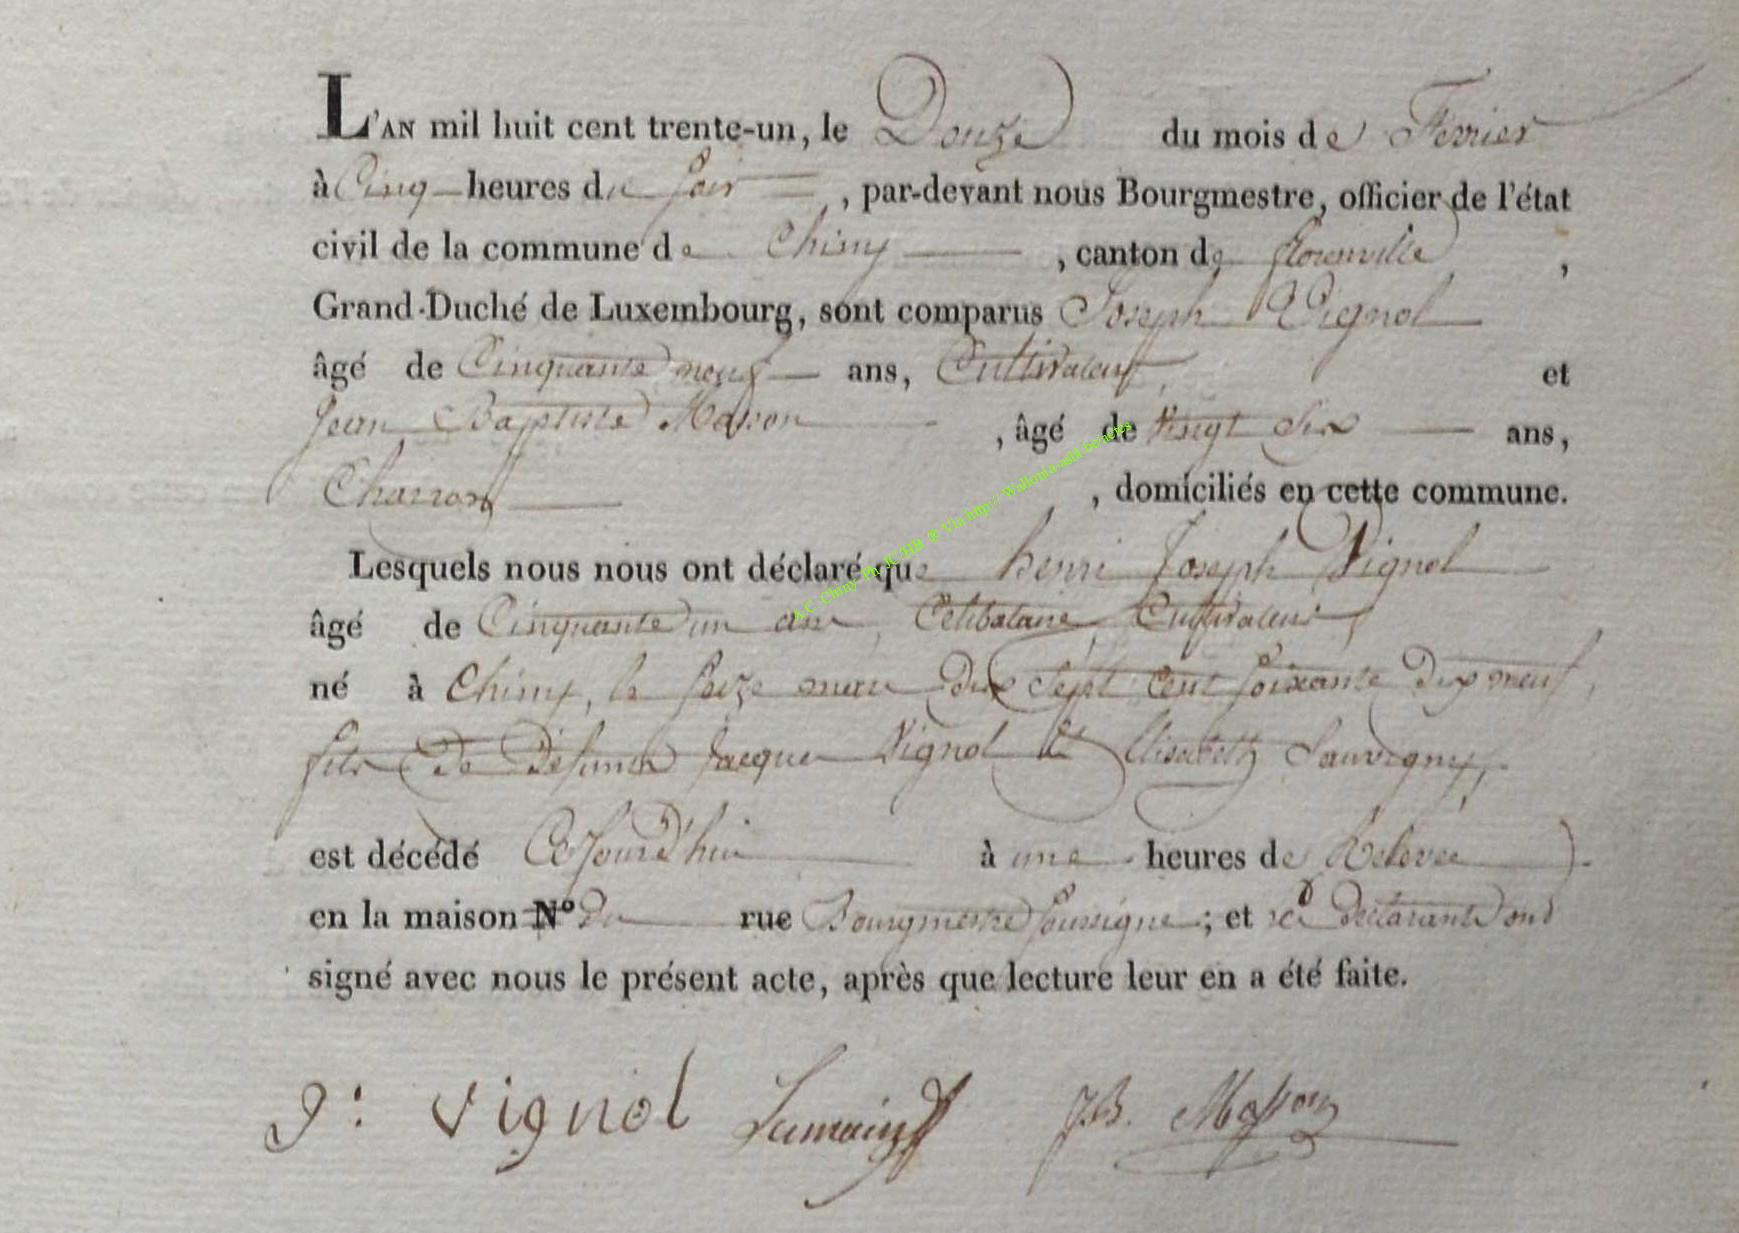 L'AN mil huit cent trente-un, le Douze du mois de Fevrier
à Cinq heures du soir, par-devant nous Bourgmestre, officier de l'état
civil de la commune de Chiny, canton de florenville,
Grand-Duché de Luxembourg, sont comparus Joseph Vignol
âgé de Cinquante neuf ans, Cultivateur, et
Jean Baptiste Masson, âgé de Vingt six ans,
Charron, domiciliés en cette commune.
Lesquels nous nous ont déclaré que henri Joseph Vignol
âgé de Cinquante un ans, Celibataire, Cultivateur,
né à Chiny, le seize mars dix sept cent soixante dix neuf,
fils de défunts Jacques Vignol et Elisabeth Sauvigny,
est décédé Cejourd'hui à une heures de Relevée
en la maison N° du rue Bourgmestre soussigné; et les declarants ont
signé avec nous le présent acte, après que lecture leur en a été faite.
J: Vignol JB. Masson
A.C. Chiny Ph JC HB @ Via http://Wallonia-asbl.be/actes